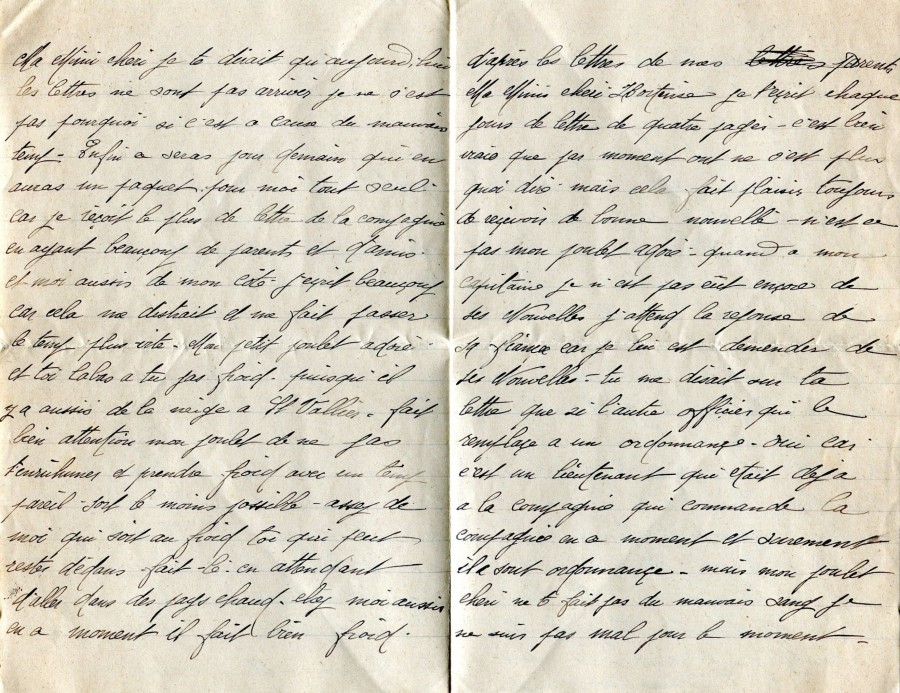 Ma Mimi chéri je te dirait qu'aujourd,hui
les lettres ne sont pas arriver je ne s'est
pas pourquoi si c'est a cause du mauvais
temp - Enfin ce seras pour demain qui en
auras un paquet pour moi tout seul -
car je reçoit le plus de lettre de la compagnie
en ayant beaucoup de parents et d'amis -
et moi aussis de mon côté j'ecrit beaucoup
car cela me distrait et me fait passer
le temp plus vite - Mon petit poulet adoré -
et toi labas a tu pas froid - puisqu'il
y a aussis de la neige a St Vallier - fait
bien attention mon poulet de ne pas
t'enrhumer et prendre froid avec un temp
pareil - sort le moins possible - assez de
moi qui soit au froid toi qui peut
rester dedans - fait-le - en attendant
d'aller dans des pays chaud - chez moi aussis
en ce moment il fait bien froid -
d'après les lettres de mes parents
Ma Mimi chéri Hortense je t'ecrit chaque
jours de lettre de quatre pages - c'est bien
vraie que par moment ont ne s'est plus
quoi dire - mais cela fait plaisir toujours
de reçevoir de bonne nouvelle - n'est ce
pas mon poulet adoré - quand a mon
capitaine je n'est pas eût encore de
ses Nouvelles j'attend la reponse de
sa fiancé car je lui est demender de
ses Nouvelles - tu me disait sur ta
lettre que si l'autre officier qui le
remplaçe a un ordonnançe - oui car
c'est un lieutenant qui etait deja
a la compagnie qui commande la
compagnie en ce moment et surement
il a sont ordonnançe - mais mon poulet
chéri ne te fait pas du mauvais sang je
ne suis pas mal pour le moment -